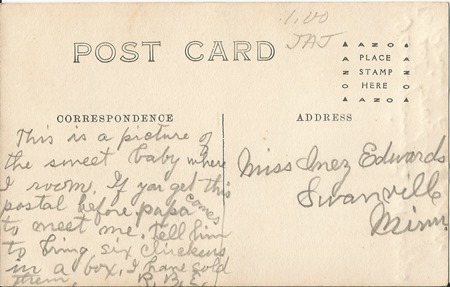 1.00
JAJ
POST CARD
AZO
PLACE
STAMP
HERE
AZO
AZO
AZO
CORRESPONDENCE
ADDRESS
This is a picture of
the sweet baby where
I room. If you get this
postal before papa comes
to meet me. tell him
to bring six chickens
in a box, I have sold
them,
R. B. E.
Miss Inez Edwards
Swanville
Minn.